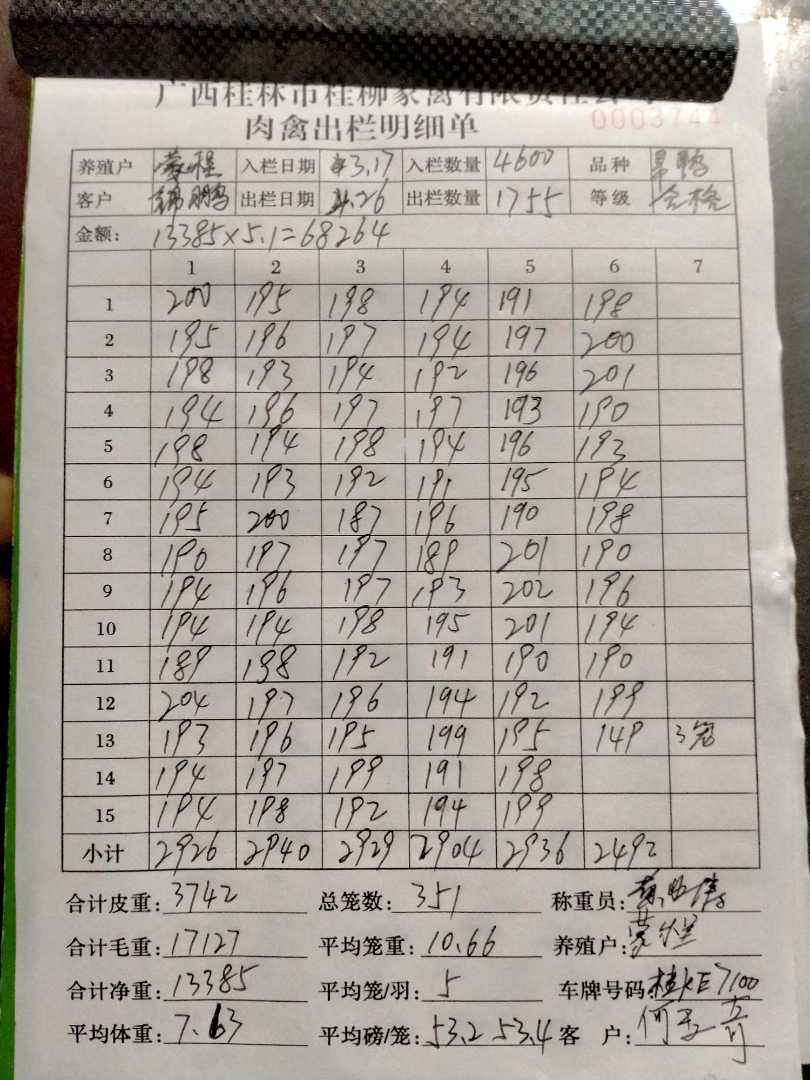 广西桂林市桂柳家禽有限责任公司
肉禽出栏明细单 0003744
养殖户 蒙程 入栏日期 3.17 入栏数量 4600 品种
客户 锦鹏 出栏日期 4.26 出栏数量 1755 等级 合格
金额: 13385×5.1=68264
1 2 3 4 5 6 7
1 200 195 198 194 191 198
2 195 196 197 194 197 200
3 198 193 194 192 196 201
4 194 196 197 197 193 190
5 198 194 198 194 196 193
6 194 193 192 191 195 194
7 195 200 187 196 190 198
8 190 197 197 189 201 190
9 194 196 197 193 202 196
10 194 194 198 195 201 194
11 189 198 192 191 190 190
12 204 197 196 194 192 199
13 193 196 195 199 195 149 3笼
14 194 197 199 191 198
15 194 198 192 194 199
小计 2926 2940 2929 2904 2936 2492
合计皮重: 3742 总笼数: 351 称重员:
合计毛重: 17127 平均笼重: 10.66 养殖户: 蒙程
合计净重: 13385 平均笼/羽: 5 车牌号码: 桂KE7100
平均体重: 7.63 平均磅/笼: 53.2 53.4 客 户: